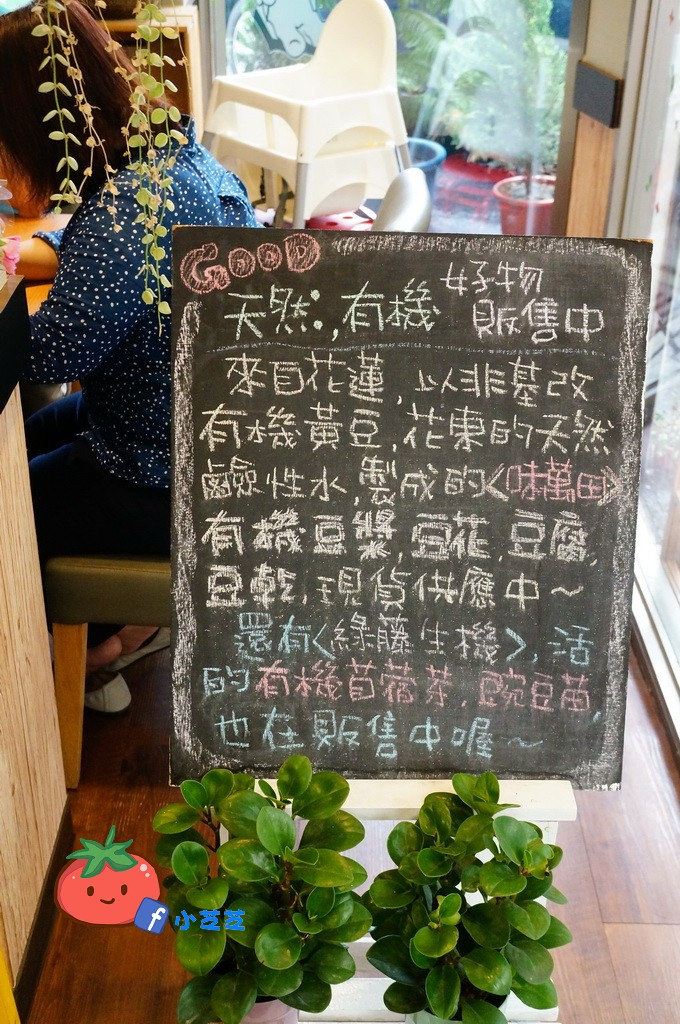 GOOD
天然,有機 好物
販售中
來自花蓮,以非基改
有機黃豆,花東的天然
鹼性水,製成的<味萬田>
有機豆漿,豆花,豆腐,
豆乾,現貨供應中~
還有<綠藤生機>,活
的有機苜蓿芽,豌豆苗,
也在販售中喔~
f 小芝芝